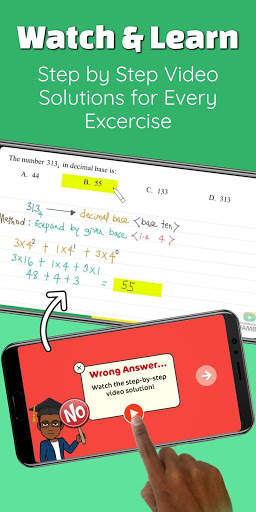 Watch & Learn
Step by Step Video
Solutions for Every
Excercise
The number 313₄ in decimal base is:
A. 44
B. 55
C. 133
D. 313
313₄ → decimal base <base ten>
Method: Expand by given base <i.e 4.>
3×4² + 1×4¹ + 3×4⁰
3×16 + 1×4 + 3×1
48 + 4 + 3 = 55
Wrong Answer...
Watch the step-by-step
video solution!
NO